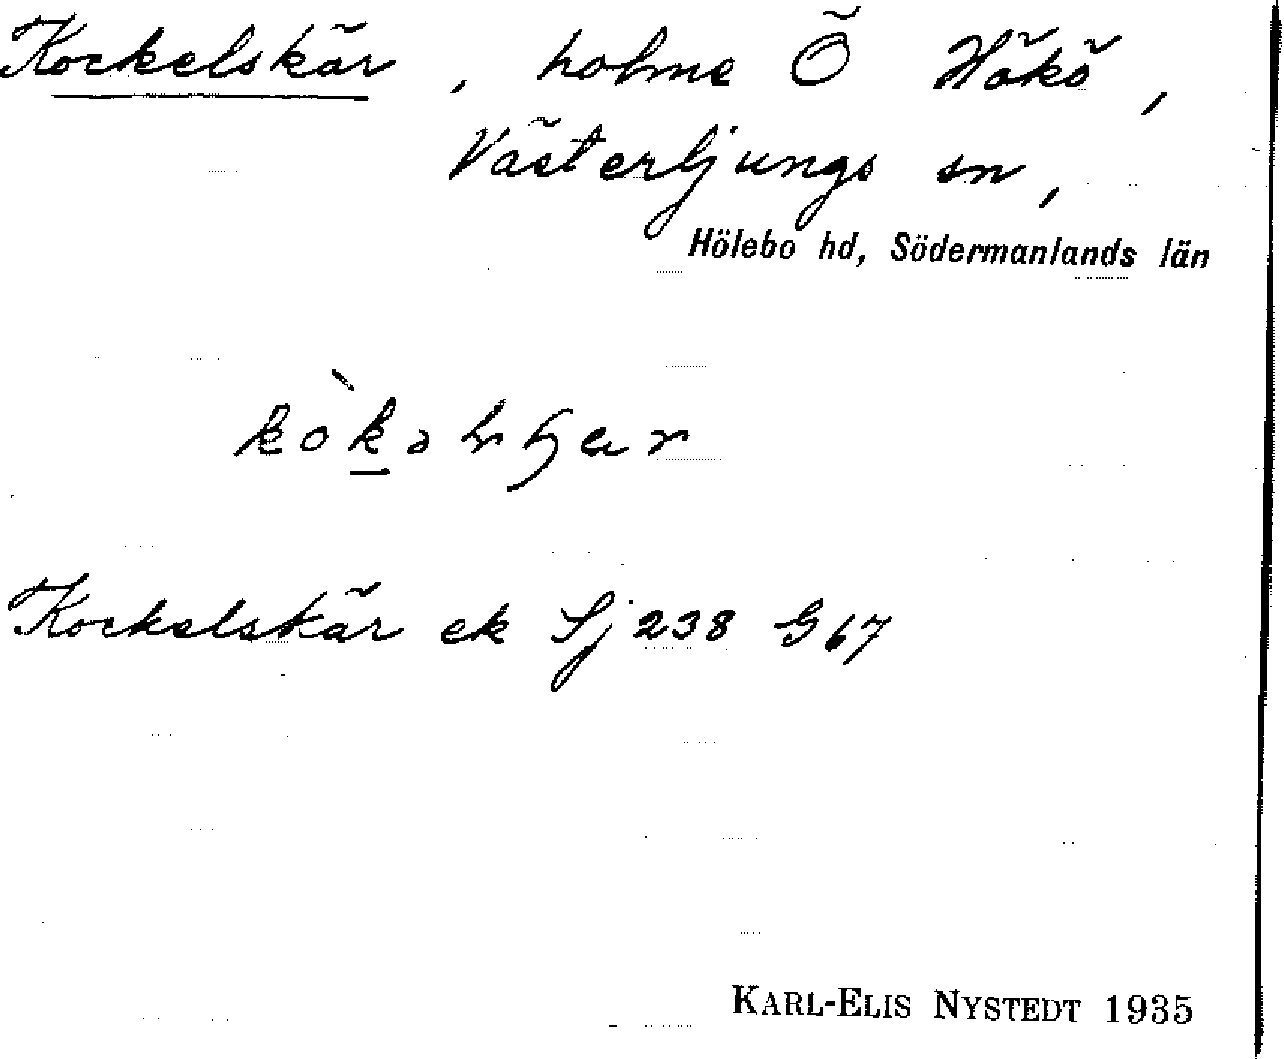 Kockelskär, holme Ö Hökö,
Västerljungs sn,
Hölebo hd, Södermanlands län
Kockelskär ek Sj 238 G 67
KARL-ELIS NYSTEDT 1935